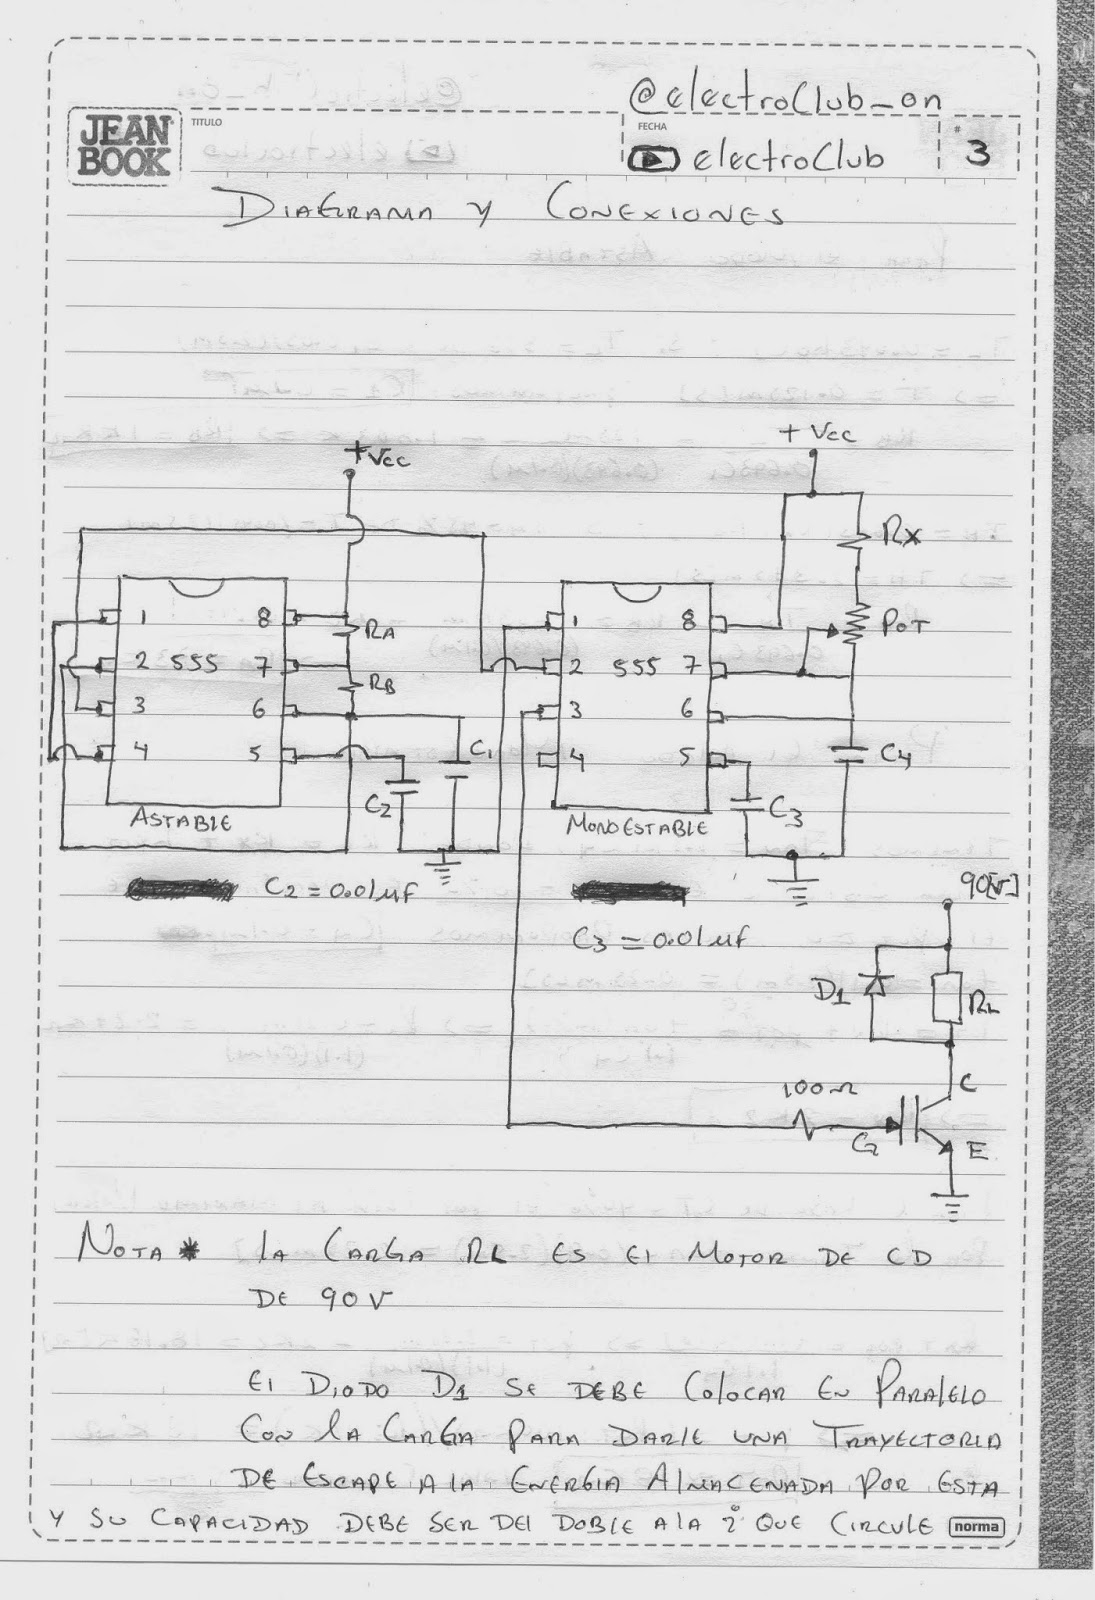 @electroClub_on
JEAN BOOK
TITULO
FECHA
electroClub
# 3
DIAGRAMA Y CONEXIONES
+Vcc
+Vcc
RX
1 8
RA
1 8
POT
2 555 7
2 555 7
RB
3 6
3 6
4 5
C1
4 5
C4
C2
C3
ASTABLE
MONOESTABLE
C2 = 0.01 µf
90[v]
C3 = 0.01 µf
D1
RL
100Ω
C
G
E
NOTA * LA CARGA RL ES El MOTOR DE CD
DE 90V
El DIODO D1 SE DEBE COLOCAR EN PARAlElO
CON lA CARGA PARA DARlE UNA TRAYECTORIA
DE ESCAPE A lA ENERGIA AlMACENADA POR ESTA
Y SU CAPACIDAD DEBE SER DEl DOBLE A lA i QUE CIRCULE
norma